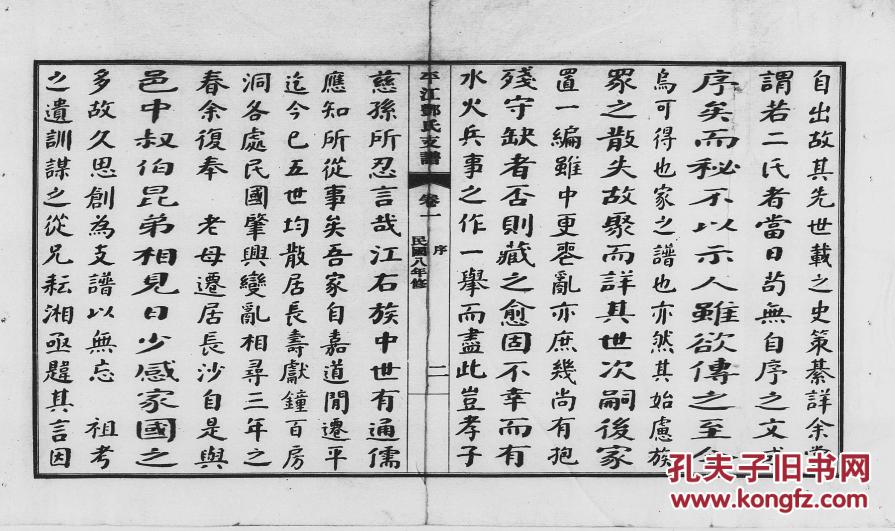 自出故其先世載之史策綦詳余嘗
謂若二氏者當日苟無自序之文或
序矣而秘不以示人雖欲傳之至今
烏可得也家之譜也亦然其始慮族
眾之散失故聚而詳其世次嗣後家
置一編雖中更喪亂亦庶幾尚有抱
殘守缺者否則藏之愈固不幸而有
水火兵事之作一舉而盡此豈孝子
平江鄧氏支譜 卷一 序 二 民國八年修
慈孫所忍言哉江右族中世有通儒
應知所從事矣吾家自嘉道間遷平
迄今已五世均散居長壽獻鐘百房
洞各處民國肇興變亂相尋三年之
春余復奉 老母遷居長沙自是與
邑中叔伯昆弟相見日少感家國之
多故久思創為支譜以無忘 祖考
之遺訓謀之從兄耘湘亟韙其言因
孔夫子旧书网
www.kongfz.com